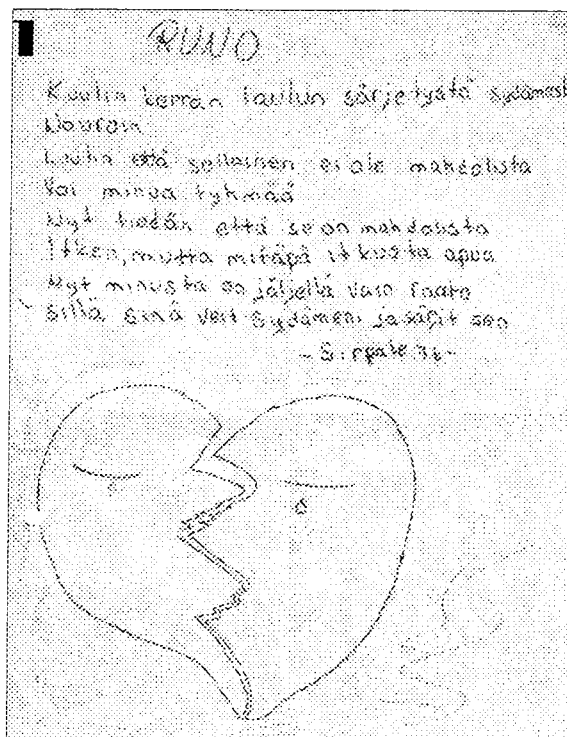 RUNO
Kuulin kerran laulun särjetystä sydämestä
Nauroin
Luulin että sellainen ei ole mahdolista
Voi minua tyhmää
Nyt tiedän että se on mahdolista
Itken, mutta mitäpä itkusta apua
Nyt minusta on jäljellä vain raato
sillä sinä veit sydämeni ja särjit sen